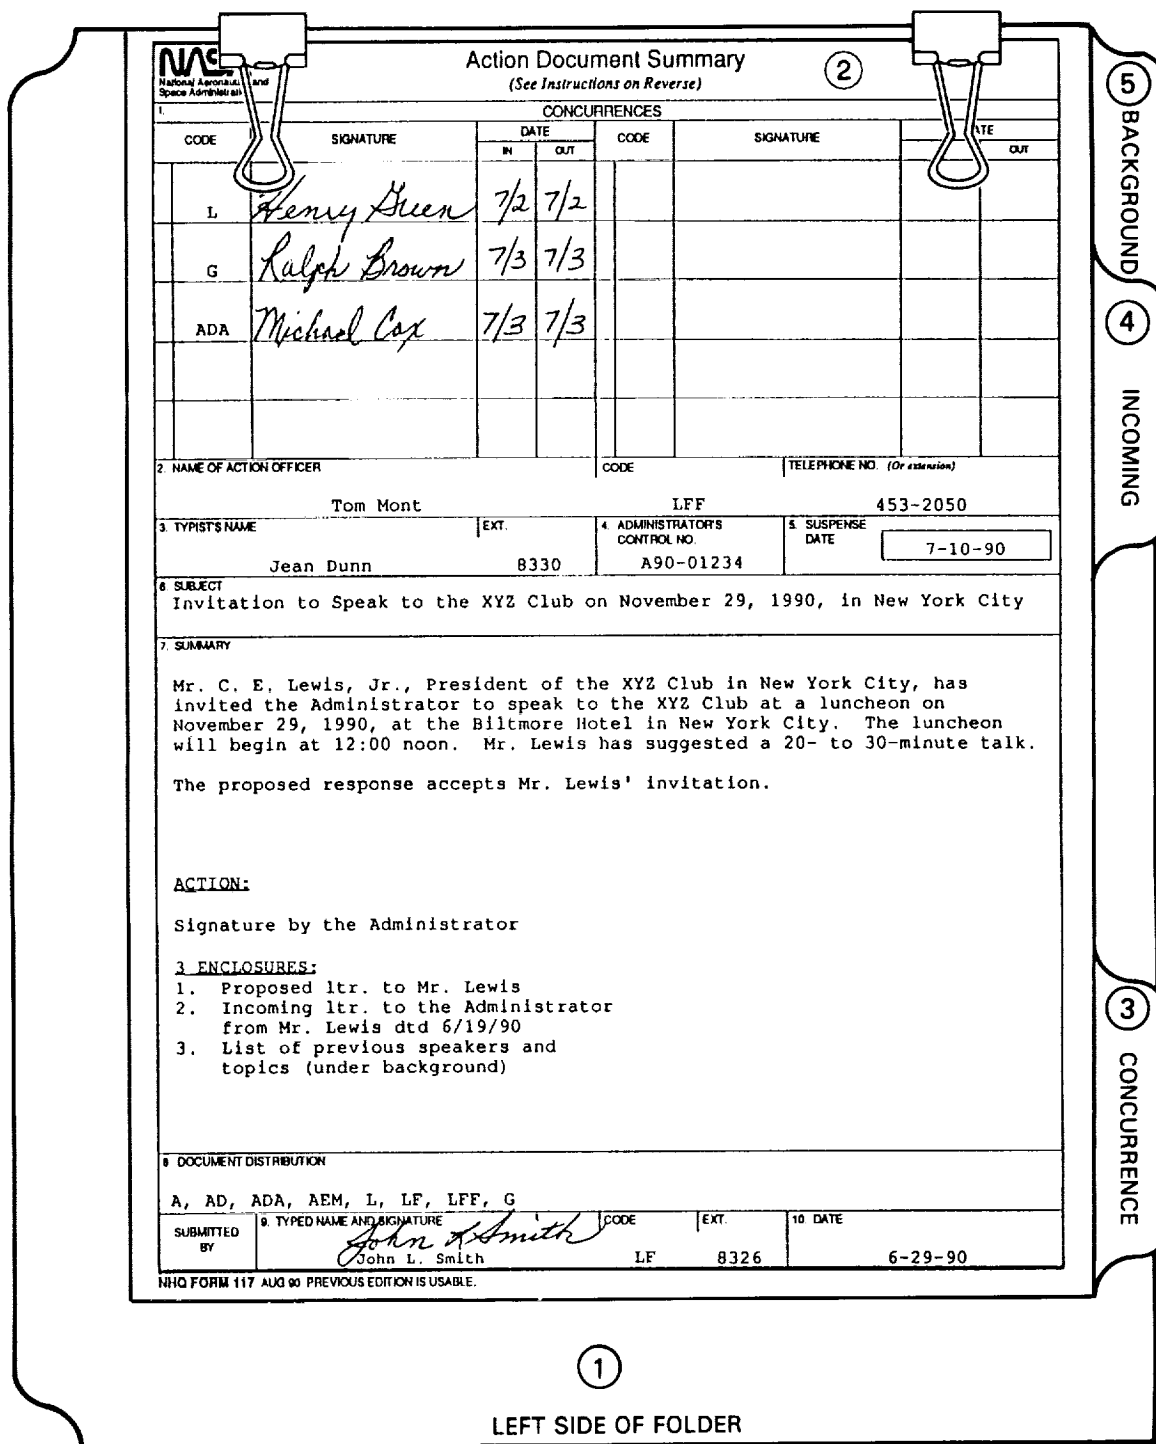 NAS
National Aeronautics and
Space Administration
Action Document Summary
(See Instructions on Reverse)
2
1.
CONCURRENCES
CODE SIGNATURE DATE CODE SIGNATURE
IN OUT OUT
L Henry Green 7/2 7/2
G Ralph Brown 7/3 7/3
ADA Michael Cox 7/3 7/3
2. NAME OF ACTION OFFICER CODE TELEPHONE NO. (Or extension)
Tom Mont LFF 453-2050
3. TYPIST'S NAME EXT. 4. ADMINISTRATOR'S CONTROL NO. 5. SUSPENSE DATE
Jean Dunn 8330 A90-01234 7-10-90
6 SUBJECT
Invitation to Speak to the XYZ Club on November 29, 1990, in New York City
7. SUMMARY
Mr. C. E. Lewis, Jr., President of the XYZ Club in New York City, has
invited the Administrator to speak to the XYZ Club at a luncheon on
November 29, 1990, at the Biltmore Hotel in New York City. The luncheon
will begin at 12:00 noon. Mr. Lewis has suggested a 20- to 30-minute talk.
The proposed response accepts Mr. Lewis' invitation.
ACTION:
Signature by the Administrator
3 ENCLOSURES:
1. Proposed ltr. to Mr. Lewis
2. Incoming ltr. to the Administrator
from Mr. Lewis dtd 6/19/90
3. List of previous speakers and
topics (under background)
8 DOCUMENT DISTRIBUTION
A, AD, ADA, AEM, L, LF, LFF, G
SUBMITTED BY 9. TYPED NAME AND SIGNATURE CODE EXT. 10. DATE
John L Smith
John L. Smith LF 8326 6-29-90
NHQ FORM 117 AUG 90 PREVIOUS EDITION IS USABLE.
5 BACKGROUND
4 INCOMING
3 CONCURRENCE
1
LEFT SIDE OF FOLDER